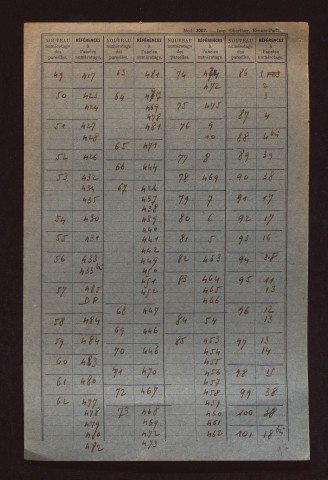 NOUVEAU numérotage des parcelles.
RÉFÉRENCES à l'ancien numérotage
NOUVEAU numérotage des parcelles.
RÉFÉRENCES à l'ancien numérotage
NOUVEAU numérotage des parcelles.
RÉFÉRENCES à l'ancien numérotage
NOUVEAU numérotage des parcelles.
RÉFÉRENCES à l'ancien numérotage
49 417
50 423
424
51 427
428
52 426
53 432
434
435
54 430
55 431
56 433
433bis
57 485
D.P
58 484
59 484
60 483
61 480
62 477
478
479
480
482
63 481
64 487
469
478
481
65 471
66 444
67 426
437
438
439
440
441
442
449
450
451
452
68 447
69 446
70 446
71 470
72 467
73 468
469
472
473
74
472
75 475
76 9
10
77 8
78 469
79 7
80 6
81 5
82 463
83 464
465
466
84 54
85 453
454
455
456
457
458
459
460
461
462
86 1
2
3
87 4
88 4bis
89 39
90 38
91 17
92 17
93 16
94 38
95 11
13
96 12
13
97 13
14
98 15
99 38
100 38
101 18bis